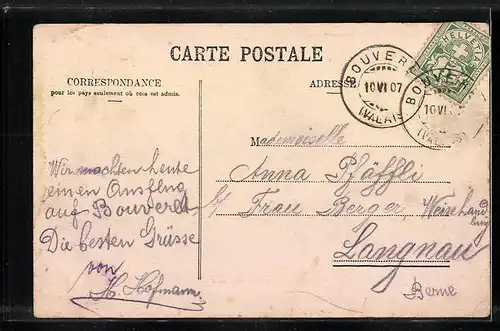 CARTE POSTALE
HELVETIA
CORRESPONDANCE
pour les pays seulement où cela est admis.
ADRESSE
BOUVERET
10 VI 07
(VALAIS)
BOUVERET
10 VI
(VALAIS)
Mademoiselle
Anna Pfäffli
b/ Frau Berger, Weinhand
lung
Langnau
Berne
Wir machten heute
einen Ausflug
auf Bouveret
Die besten Grüsse
von
H. Hofmann